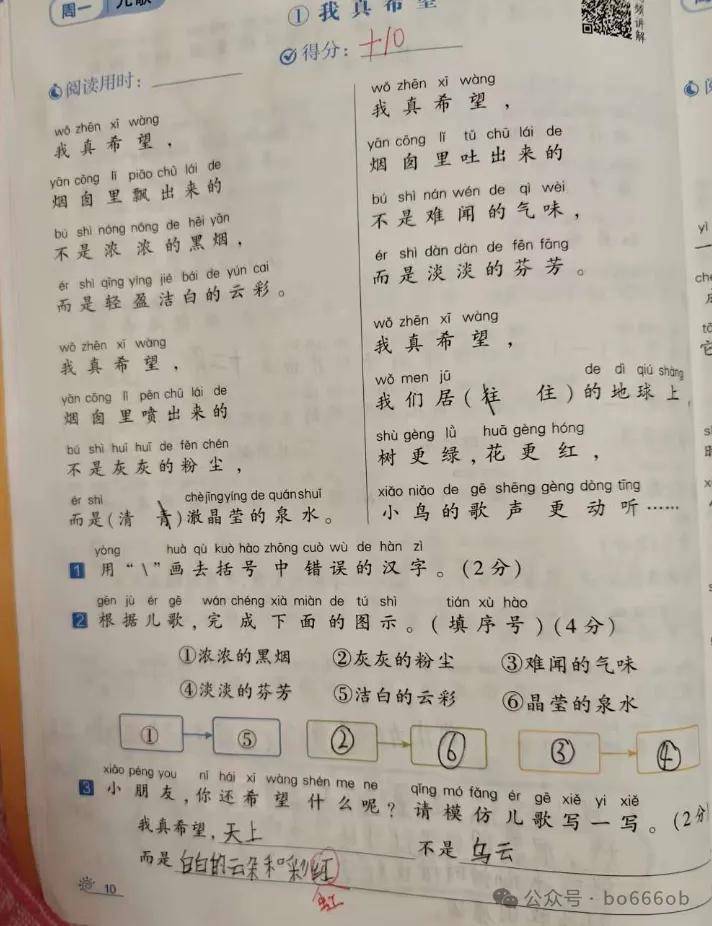 周一 儿歌
① 我真希望
频讲解
得分：+10
阅读用时：
wǒ zhēn xī wàng
我真希望，
yān cōng lǐ piāo chū lái de
烟囱里飘出来的
bú shì nóng nóng de hēi yān
不是浓浓的黑烟，
ér shì qīng yíng jié bái de yún cai
而是轻盈洁白的云彩。
wǒ zhēn xī wàng
我真希望，
yān cōng lǐ pēn chū lái de
烟囱里喷出来的
bú shì huī huī de fěn chén
不是灰灰的粉尘，
ér shì chè jīng yíng de quán shuǐ
而是（清 青）澈晶莹的泉水。
wǒ zhēn xī wàng
我真希望，
yān cōng lǐ tǔ chū lái de
烟囱里吐出来的
bú shì nán wén de qì wèi
不是难闻的气味，
ér shì dàn dàn de fēn fāng
而是淡淡的芬芳。
wǒ zhēn xī wàng
我真希望，
wǒ men jū de dì qiú shàng
我们居（往 住）的地球上，
shù gèng lǜ huā gèng hóng
树更绿，花更红，
xiǎo niǎo de gē shēng gèng dòng tīng
小鸟的歌声更动听……
yòng huà qù kuò hào zhōng cuò wù de hàn zì
1 用“\”画去括号中错误的汉字。（2分）
gēn jù ér gē wán chéng xià miàn de tú shì tián xù hào
2 根据儿歌，完成下面的图示。（填序号）（4分）
①浓浓的黑烟 ②灰灰的粉尘 ③难闻的气味
④淡淡的芬芳 ⑤洁白的云彩 ⑥晶莹的泉水
① ⑤ ② ⑥ ③ ④
xiǎo péng you nǐ hái xī wàng shén me ne qǐng mó fǎng ér gē xiě yi xiě
3 小朋友，你还希望什么呢？请模仿儿歌写一写。（2分
我真希望，天上 不是乌云
而是白白的云朵和彩红
虹
10
公众号·bo666ob